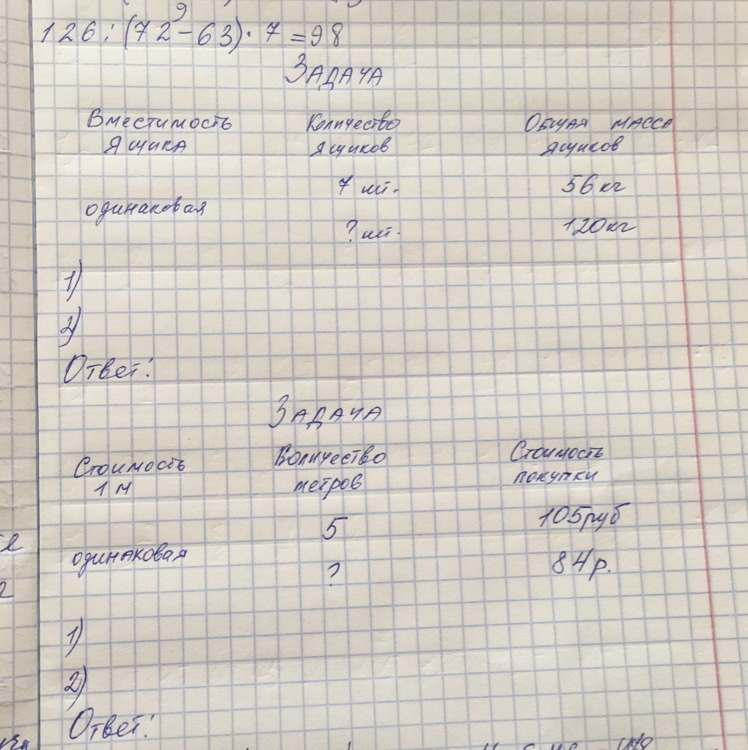 9
126 : (72 - 63) · 7 = 98
Задача
Вместимость ящика Количество ящиков Общая масса ящиков
7 шт. 56 кг
одинаковая
? шт. 120 кг
1)
2)
Ответ:
Задача
Стоимость 1 м Количество метров Стоимость покупки
5 105 руб
одинаковая
? 84 р.
1)
2)
Ответ: